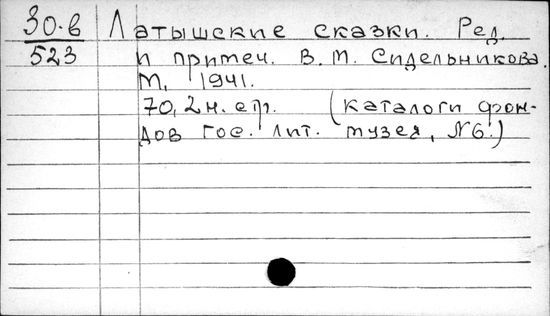 30-в Латышские сказки. Ред.
523 и примеч. В. М. Сидельникова.
М., 1941.
70, 2 н. стр. (Каталоги фон-
дов Гос. Лит. музея, №6.)